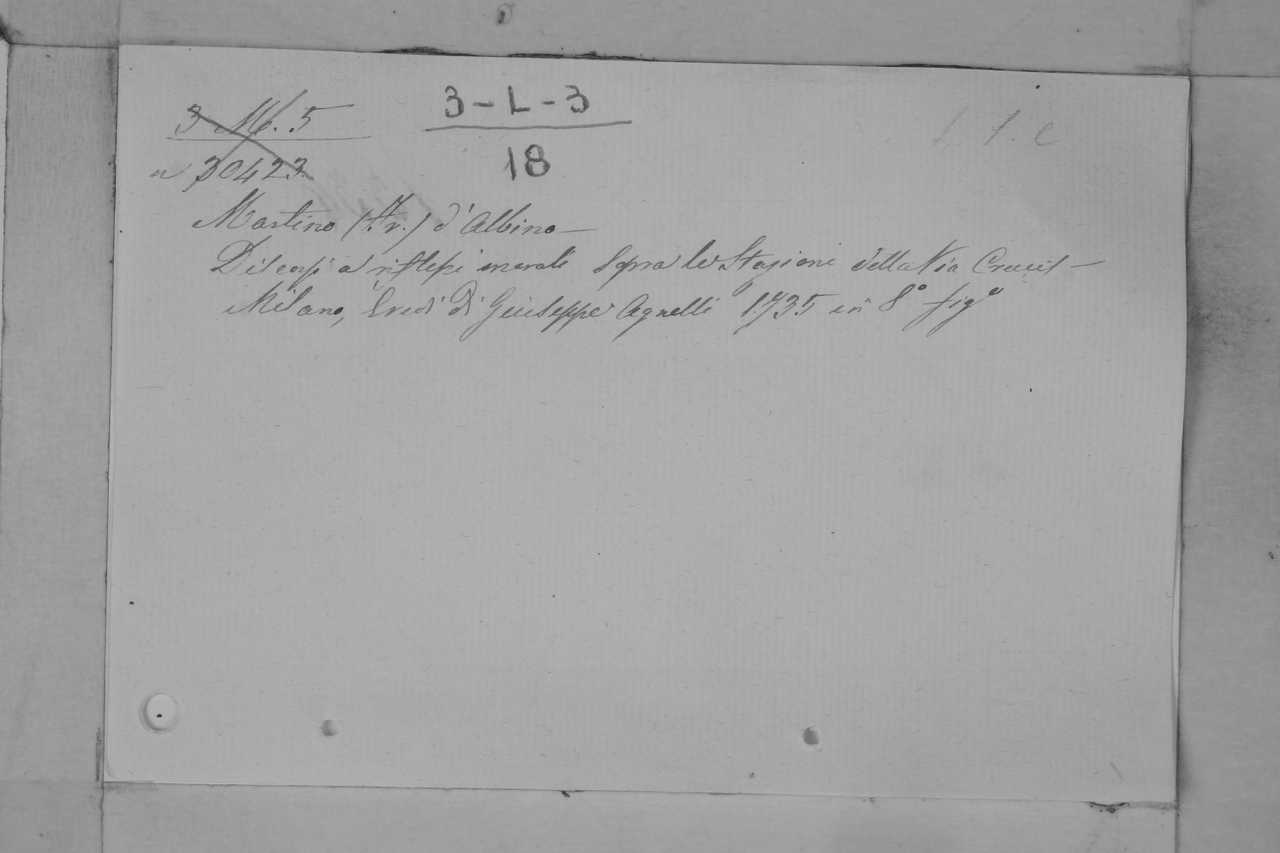 3 M. 5
3-L-3
a 30423
18
Martino (Fr.) d'Albino—
Discorsi e riflessi morali sopra le Stazioni della Via Crucis—
Milano, Eredi di Giuseppe Agnelli 1735 in 8° fig°